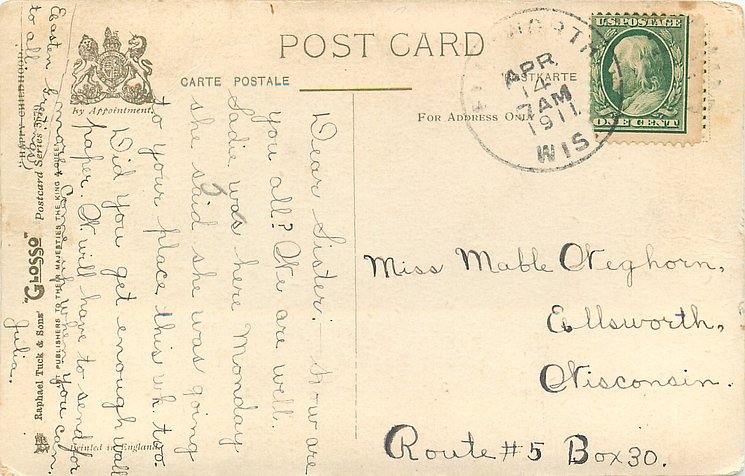 POST CARD
CARTE POSTALE
POSTKARTE
By Appointment.
FOR ADDRESS ONLY
U.S. POSTAGE
ONE CENT
ELLSWORTH
APR
14
7 AM
1911
WIS.
Dear Sister:- How are
you all? We are well.
Sadie was here Monday
she said she was going
to your place this wk. to.
Did you get enough wall
paper. We will have to send for
if you can.
Julia.
Easter Greetings
to all
Miss Mable Weghorn,
Ellsworth,
Wisconsin.
Route #5 Box 30.
"HAPPY CHILDHOOD"
Raphael Tuck & Sons' "GLOSSO" Postcard Series
ART PUBLISHERS TO THEIR MAJESTIES THE KING & QUEEN
Printed in England